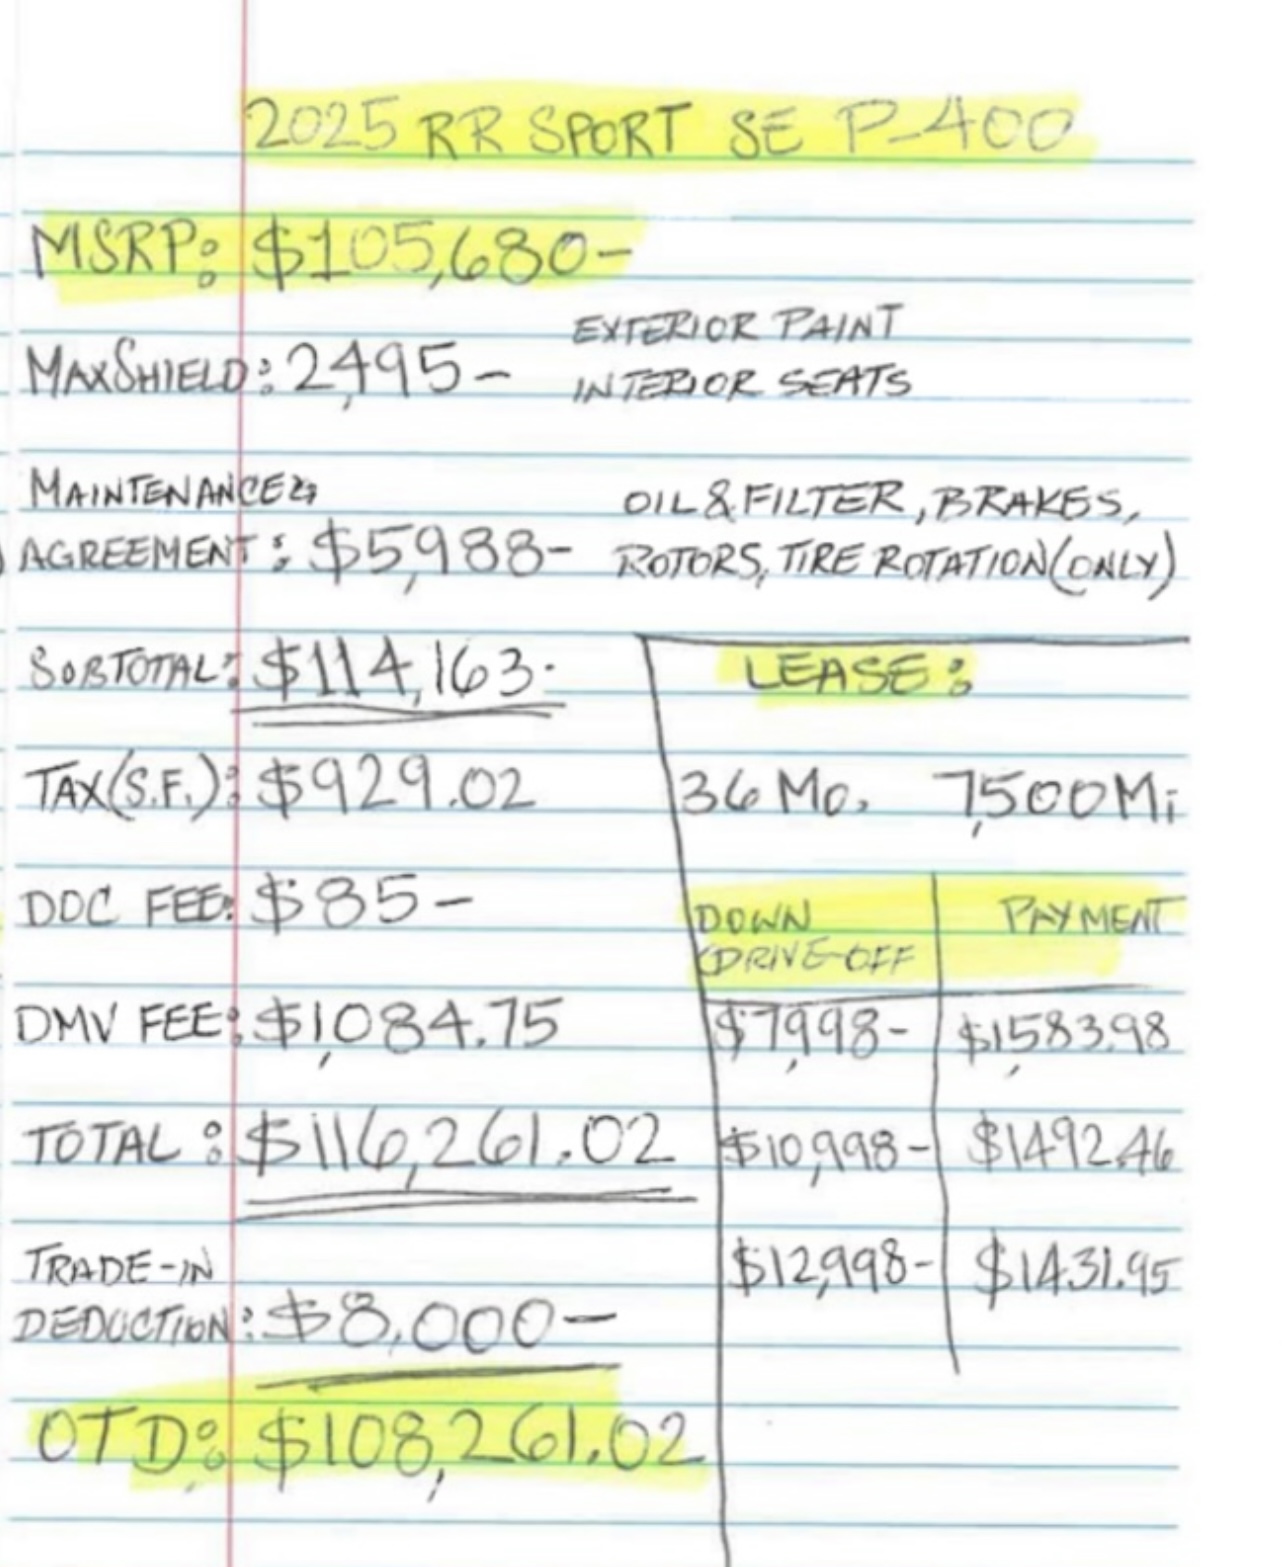 2025 RR SPORT SE P-400
MSRP: $105,680-
MAXSHIELD: 2,495-
EXTERIOR PAINT
INTERIOR SEATS
MAINTENANCE
AGREEMENT: $5,988-
OIL & FILTER, BRAKES,
ROTORS, TIRE ROTATION (ONLY)
SUBTOTAL: $114,163.
TAX (S.F.): $929.02
DOC FEE: $85-
DMV FEE: $1,084.75
TOTAL: $116,261.02
TRADE-IN
DEDUCTION: $8,000-
OTD: $108,261.02
LEASE:
36 Mo. 7,500 Mi
DOWN PAYMENT
DRIVE-OFF
$7,998- $1,583.98
$10,998- $1492.46
$12,998- $1431.95